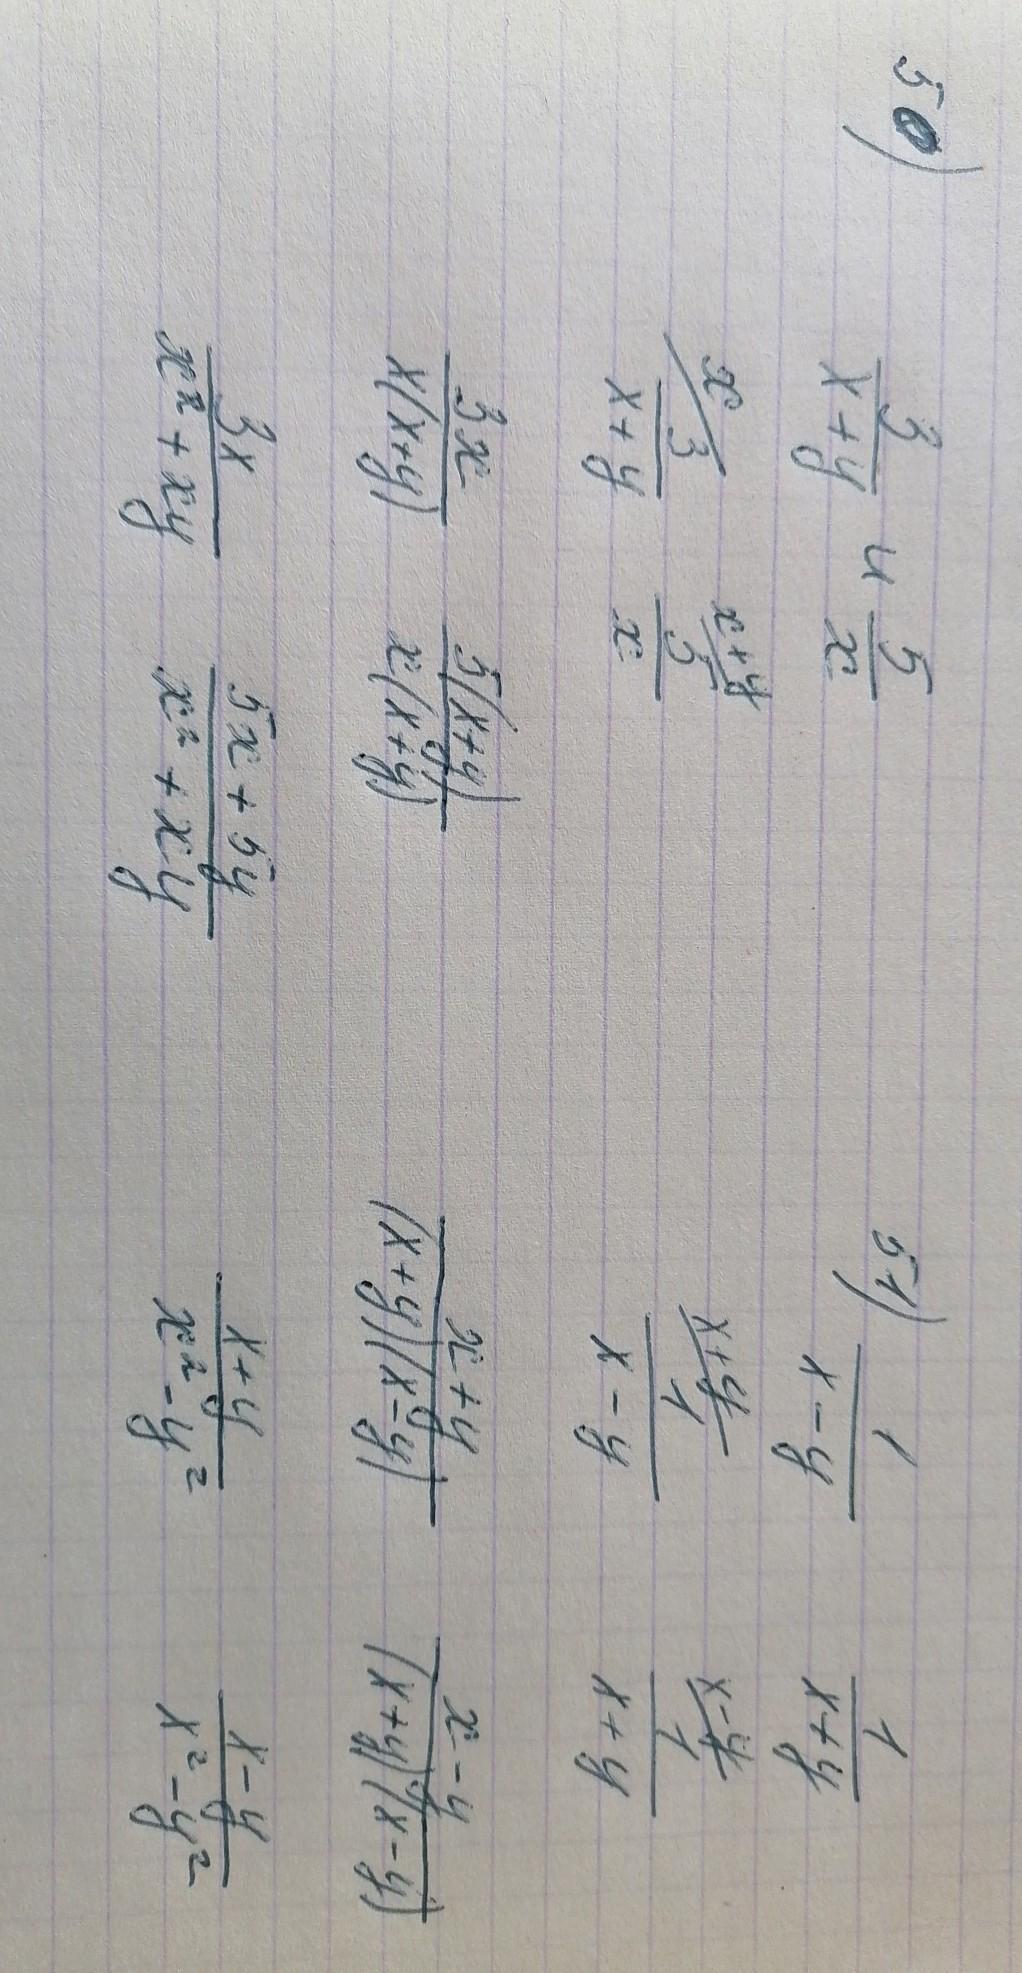 50) 3/(x+y) и 5/x
x/ 3/(x+y) x+y/ 5/x
3x/(x(x+y)) 5(x+y)/(x(x+y))
3x/(x²+xy) (5x+5y)/(x²+xy)
51) 1/(x-y) 1/(x+y)
x+y/ 1/(x-y) x-y/ 1/(x+y)
(x+y)/((x+y)(x-y)) (x-y)/((x+y)(x-y))
(x+y)/(x²-y²) (x-y)/(x²-y²)